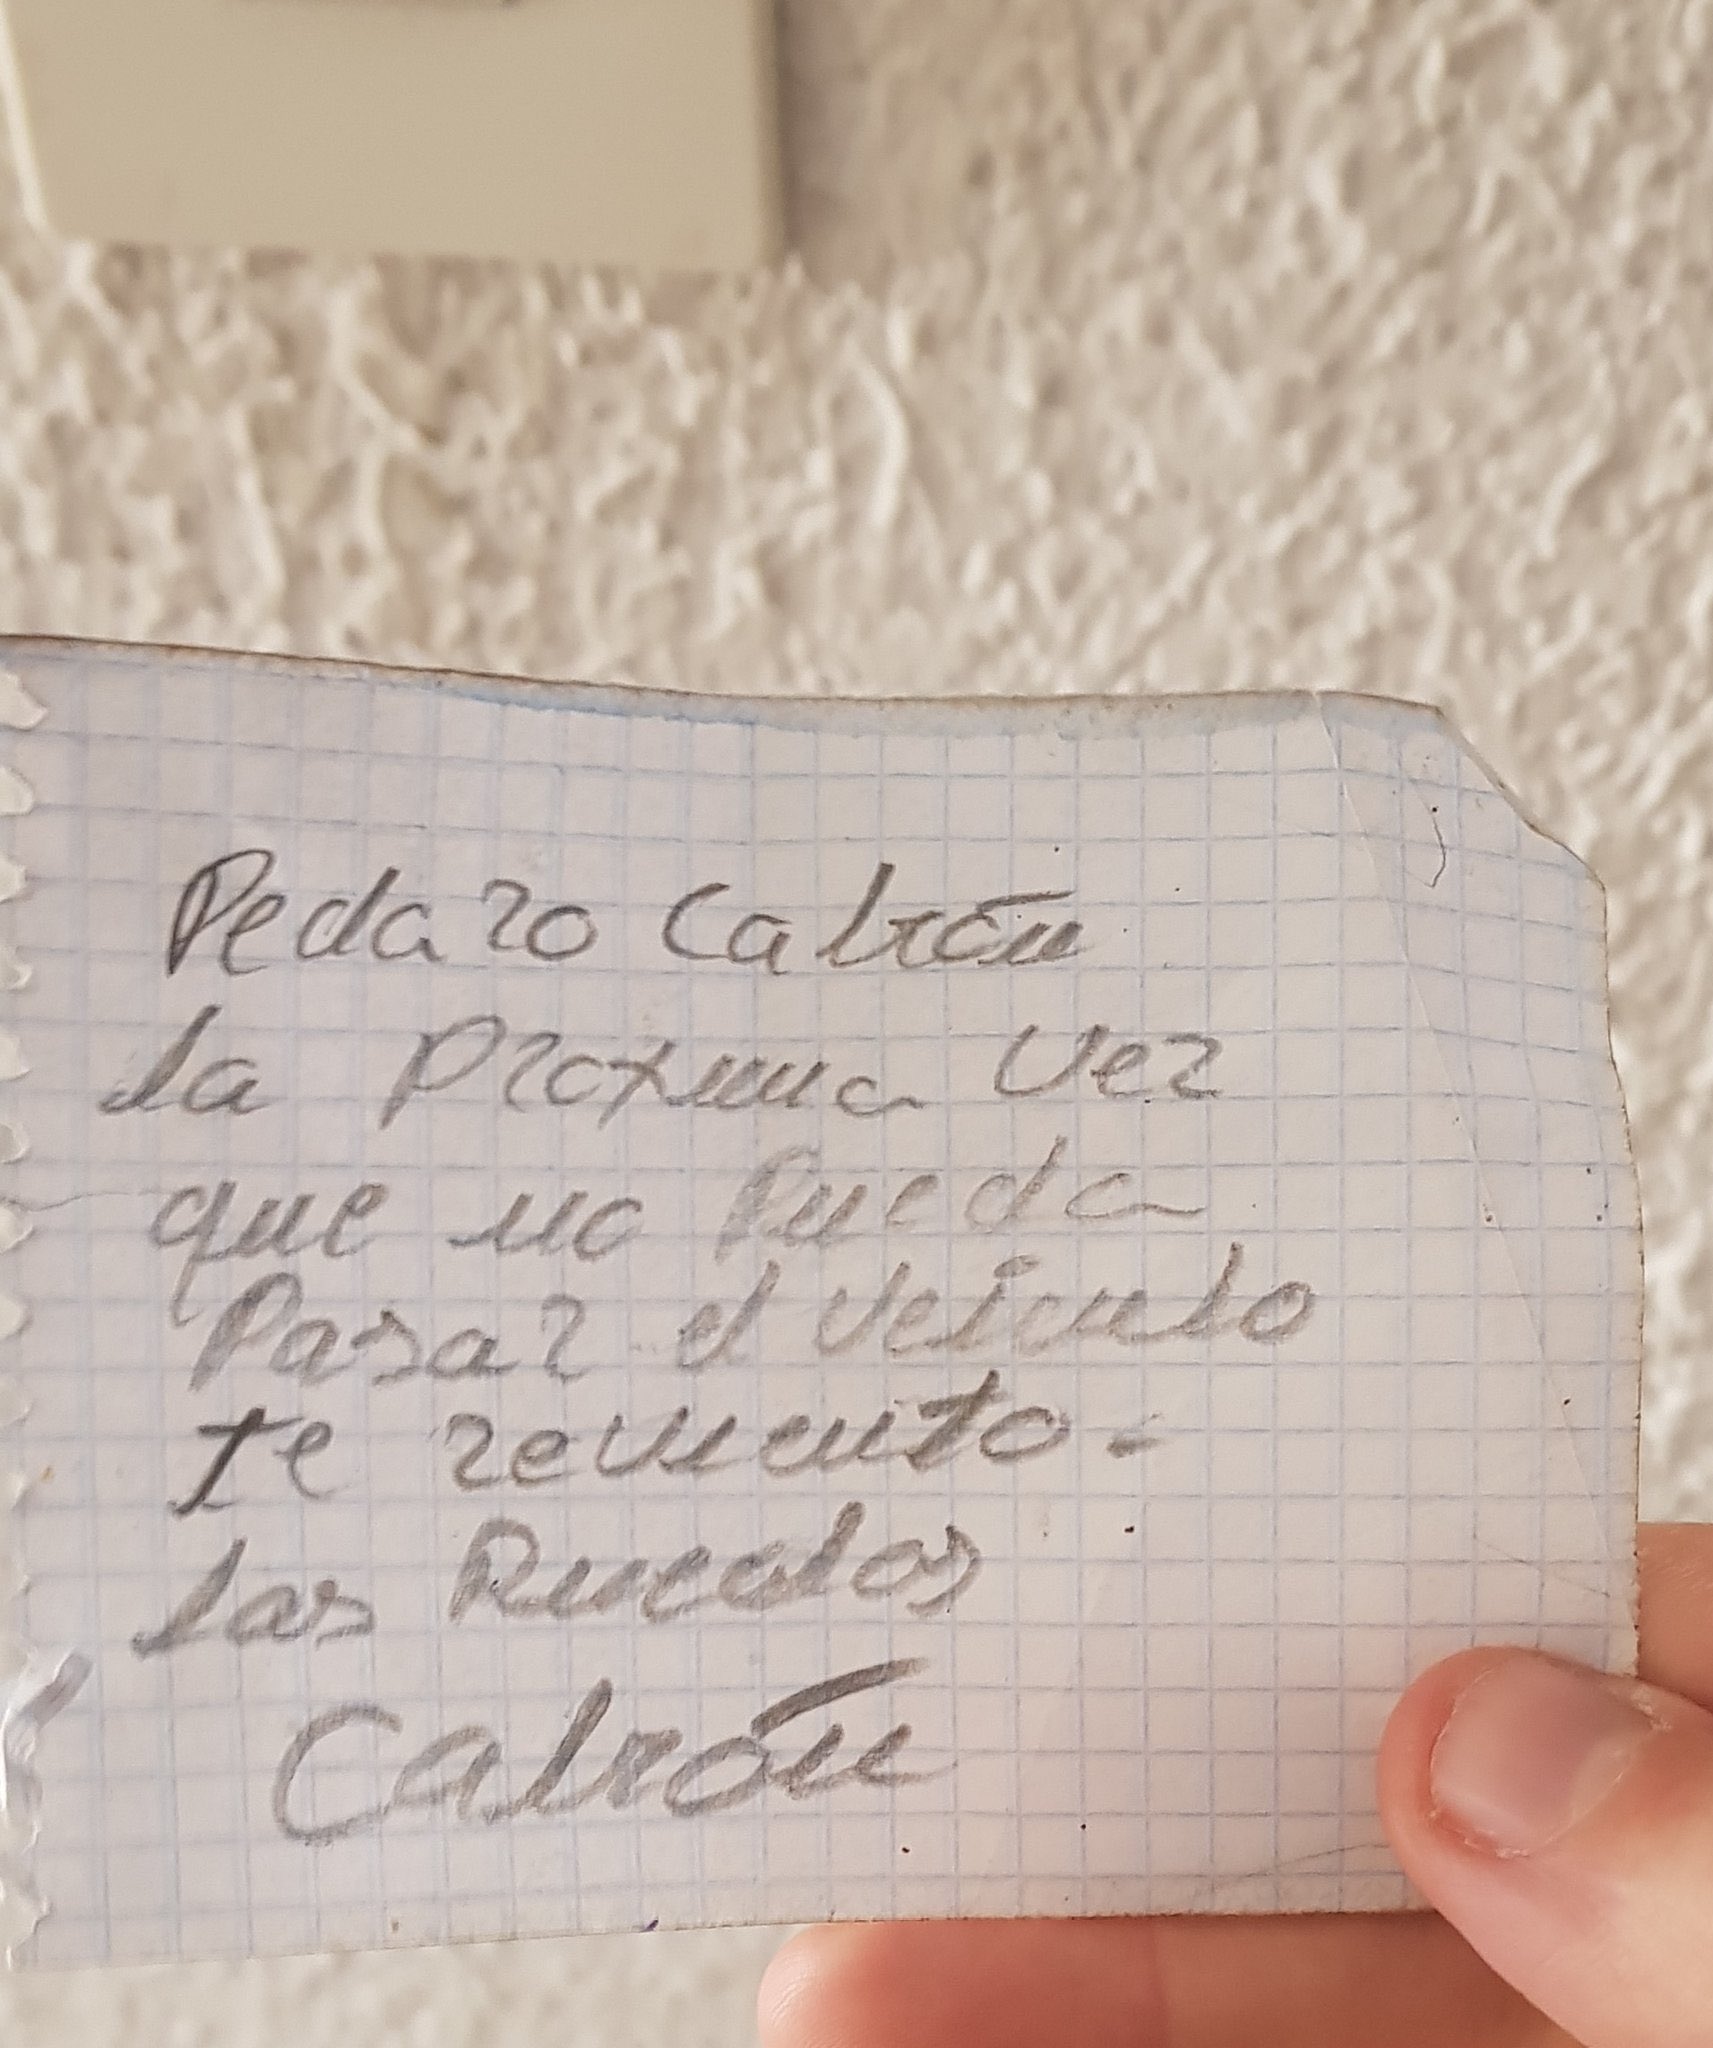 Pedazo Cabrón
la Proxima Vez
que no Pueda
Pasar el Veiculo
te reviento -
las Ruedas
Cabrón